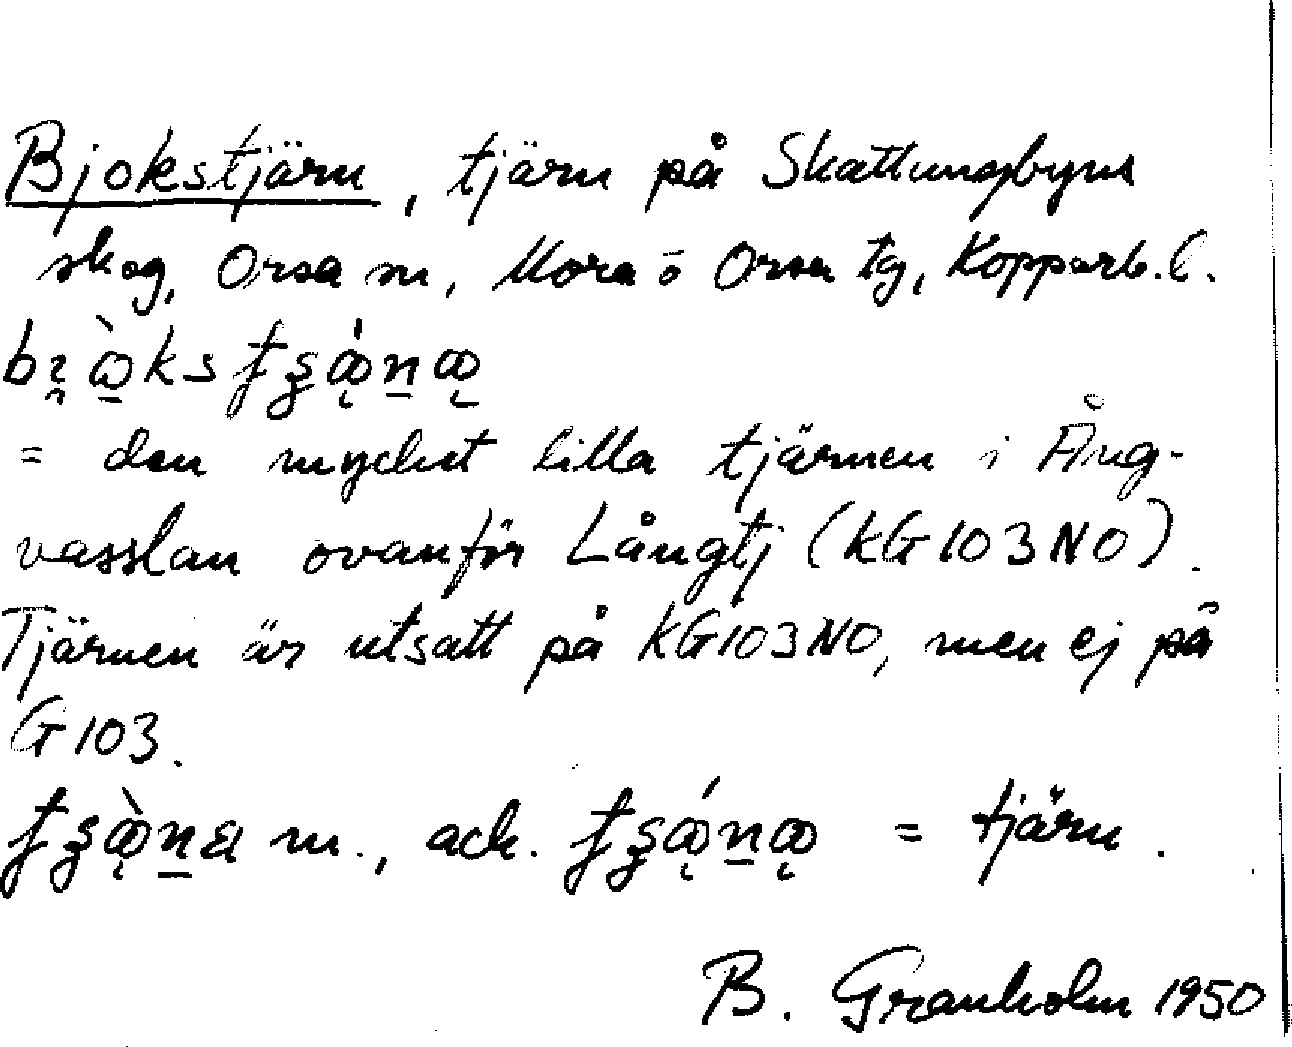 Bjokstjärn, tjärn på Skattungbyns
skog, Orsa sn, Mora o Orsa tg, Kopparb. l.
= den mycket lilla tjärnen i Ång-
vasslan ovanför Långtj (KG103NO).
Tjärnen är utsatt på KG103NO, men ej på
G103.
m., ack. = tjärn.
B. Granholm 1950